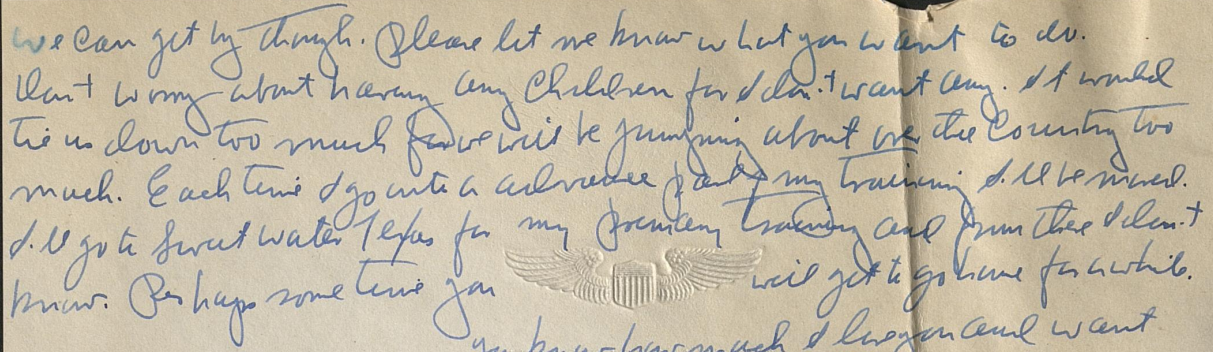 we can get by though. Please let me know what you want to do.
Don't worry about having any Children for I don't want any. It would
tie us down too much for we will be jumping about over the Country too
much. Each time I go into a advance part of my training I'll be moved.
I'll go to Sweet water Texas for my primary training and from there I don't
know. Perhaps some time you will get to go home for a while.
you know how much I love you and want